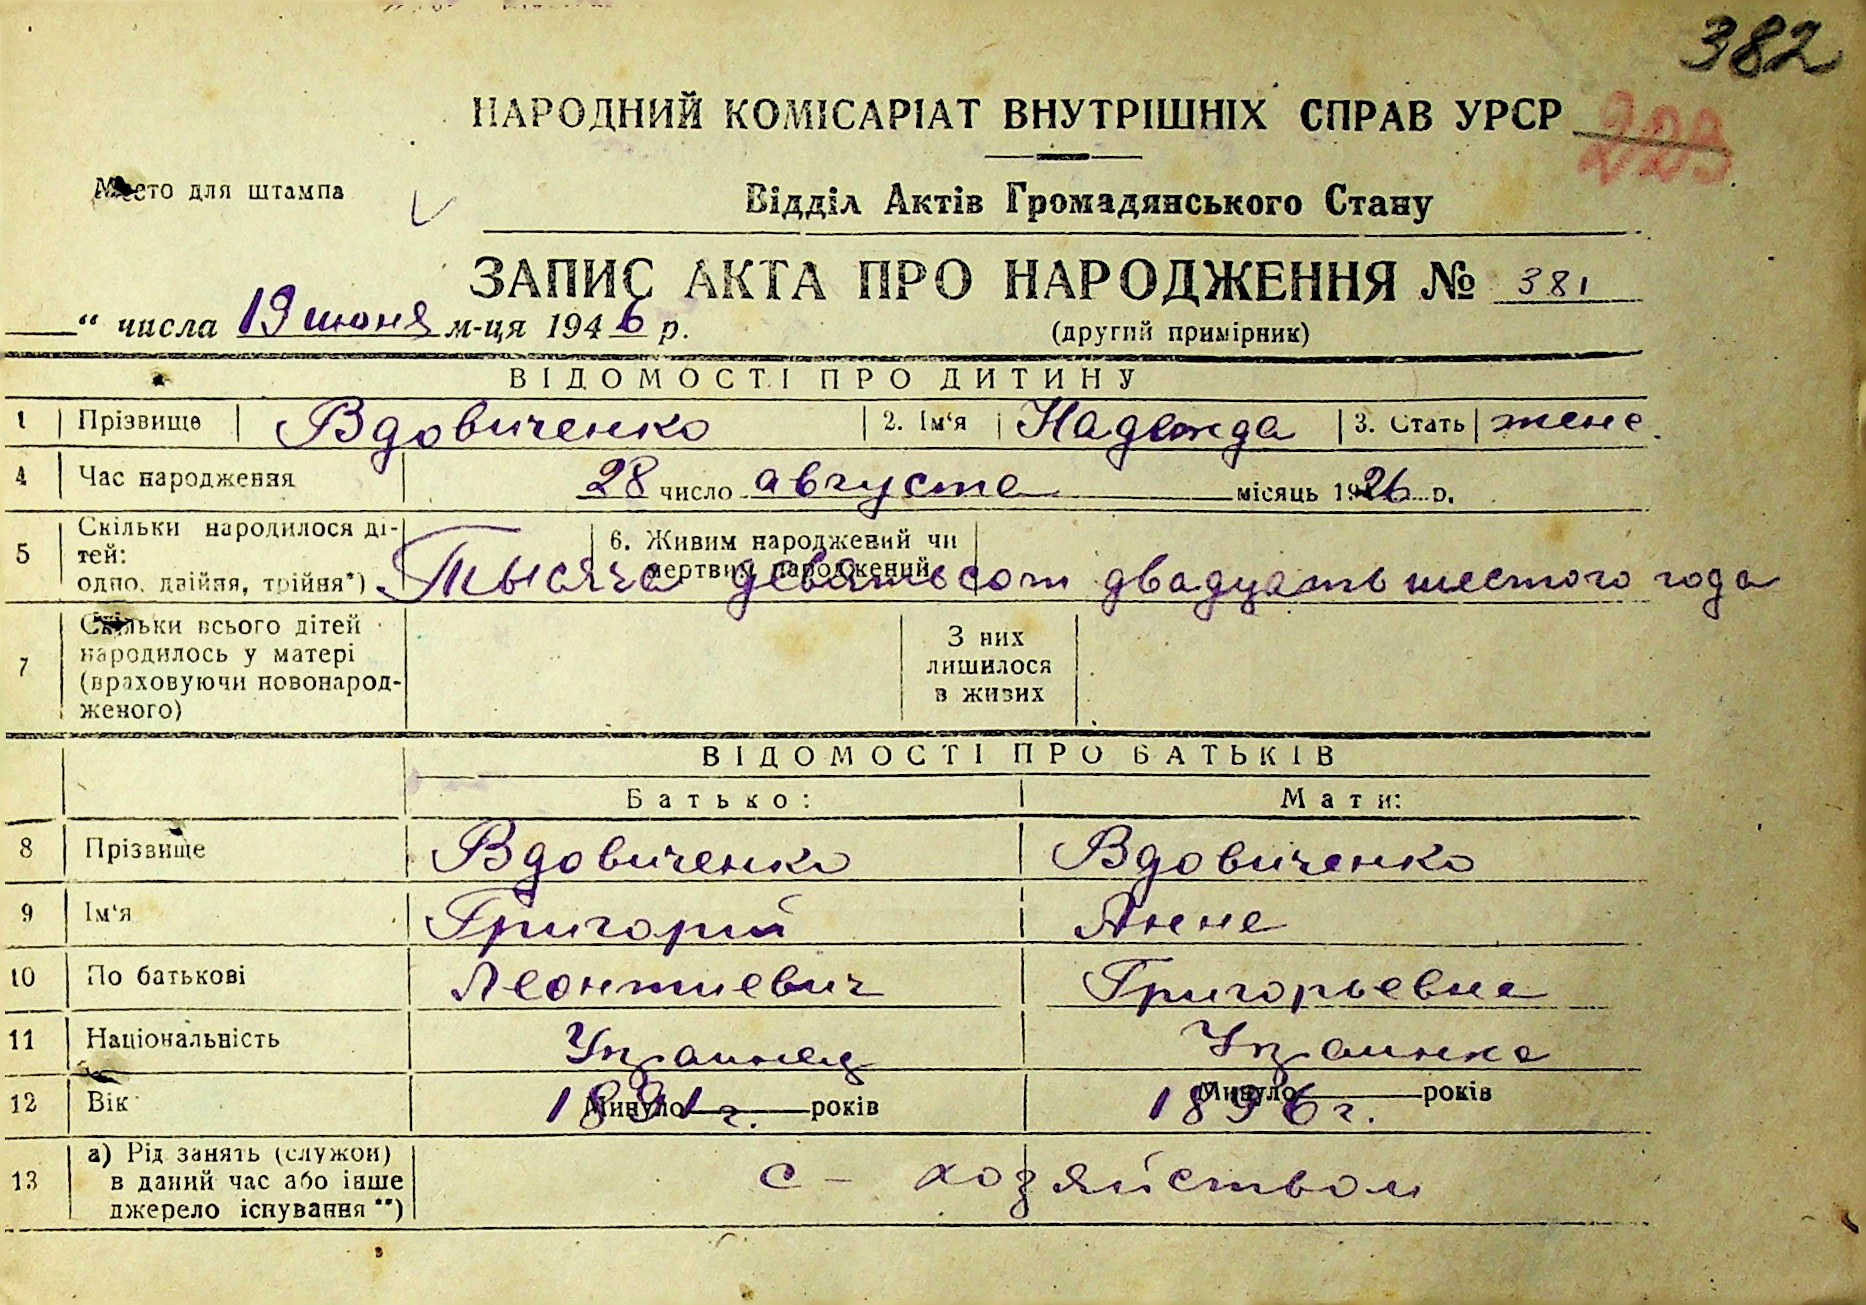 382
НАРОДНИЙ КОМІСАРІАТ ВНУТРІШНІХ СПРАВ УРСР 223
Место для штампа
Відділ Актів Громадянського Стану
ЗАПИС АКТА ПРО НАРОДЖЕННЯ № 381
“ числа 19 июня м-ця 1946 р.
(другий примірник)
ВІДОМОСТІ ПРО ДИТИНУ
1 Прізвище Вдовиченко 2. Ім‘я Надежда 3. Стать жене.
4 Час народження 28 число августа місяць 1926 р.
5 Скільки народилося ді-
тей:
одно, двійня, трійня*)
6. Живим народжений чи
мертвим народжений
Тысяча девятьсот двадцать шестого года
7 Скільки всього дітей
народилось у матері
(враховуючи новонарод-
женого)
З них
лишилося
в живих
ВІДОМОСТІ ПРО БАТЬКІВ
Батько: Мати:
8 Прізвище Вдовиченко Вдовиченко
9 Ім‘я Григорий Анна
10 По батькові Леонтиевич Григорьевна
11 Національність Украинец Украинка
12 Вік Минуло 1891 г. років Минуло 1896 г. років
13 а) Рід занять (служби)
в даний час або інше
джерело існування**)
с-хозяйством